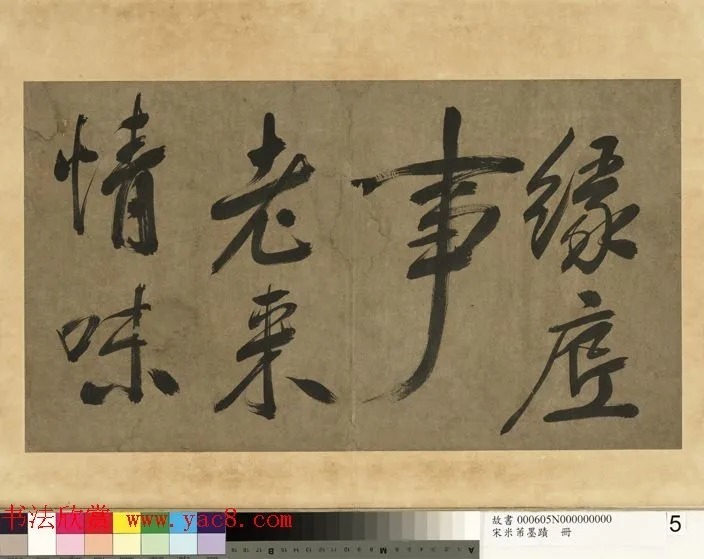 緣虚
事
老来
情味
书法欣赏 www.yac8.com
故書 000605N000000000
宋米芾墨蹟 冊
5